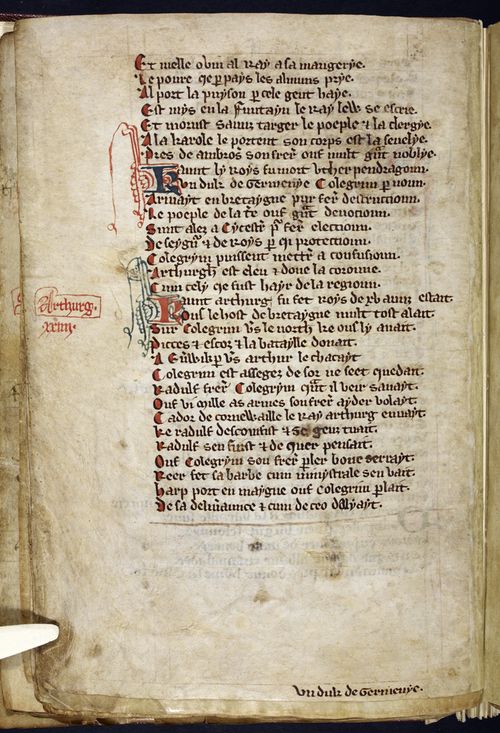 Et melle ovum al Ray a sa maungerye.
Le poure qe p pays les almuns prye.
Al port la pryson p cele gent haye.
Est mys en la funtayn le Ray lew se escrie.
Et morust saunz targer le poeple & la clergye.
A la karole le portent son corps est la sevelye.
Pres de ambros son frer ove mult gnt noblye.
Kaunt ly roys fu mort Uther pendragoun.
Un duk de Germenye Colegrim p noun.
Arivayt en bretaygne pur fer destructioun.
Le poeple de la tre ove gnt devocioun.
Sunt alez a Cycestr p fer electioun.
De seygnr & de Roys p qi protectioun.
Colegrym puissent mettr a confusioun.
Arthurgh est eleu & done la coroune.
Cum cely qe fust hayr de la regioun.
Arthurg.
xxiiii
Kaunt arthurg fu fet Roys de xv aunz estait.
Tous le host de bretaygne mult tost alait
Sur Colegrim vs le north ke ous ly avait.
Pictes & escoz & la bataylle donait.
A p vs arthur le chacayt
Colegrim est assegez de sor ne seet quedait.
Radulf frer Colegrym qnt il veir savayt.
Ove vi mille as armes son frer ayder volayt.
Cador de cornewaille le Ray arthurg envayt.
Ke Radulf desconfist & se gent tuait.
Radulf sen fuist & de quer pensait.
Ove Colegrym son frer pler bone serrayt.
Reer fet sa barbe cum mynystrale sen vait.
Harp port en maygne ove Colegrim plait.
De sa delivraunce & cum de ceo
Un duk de Germenye.